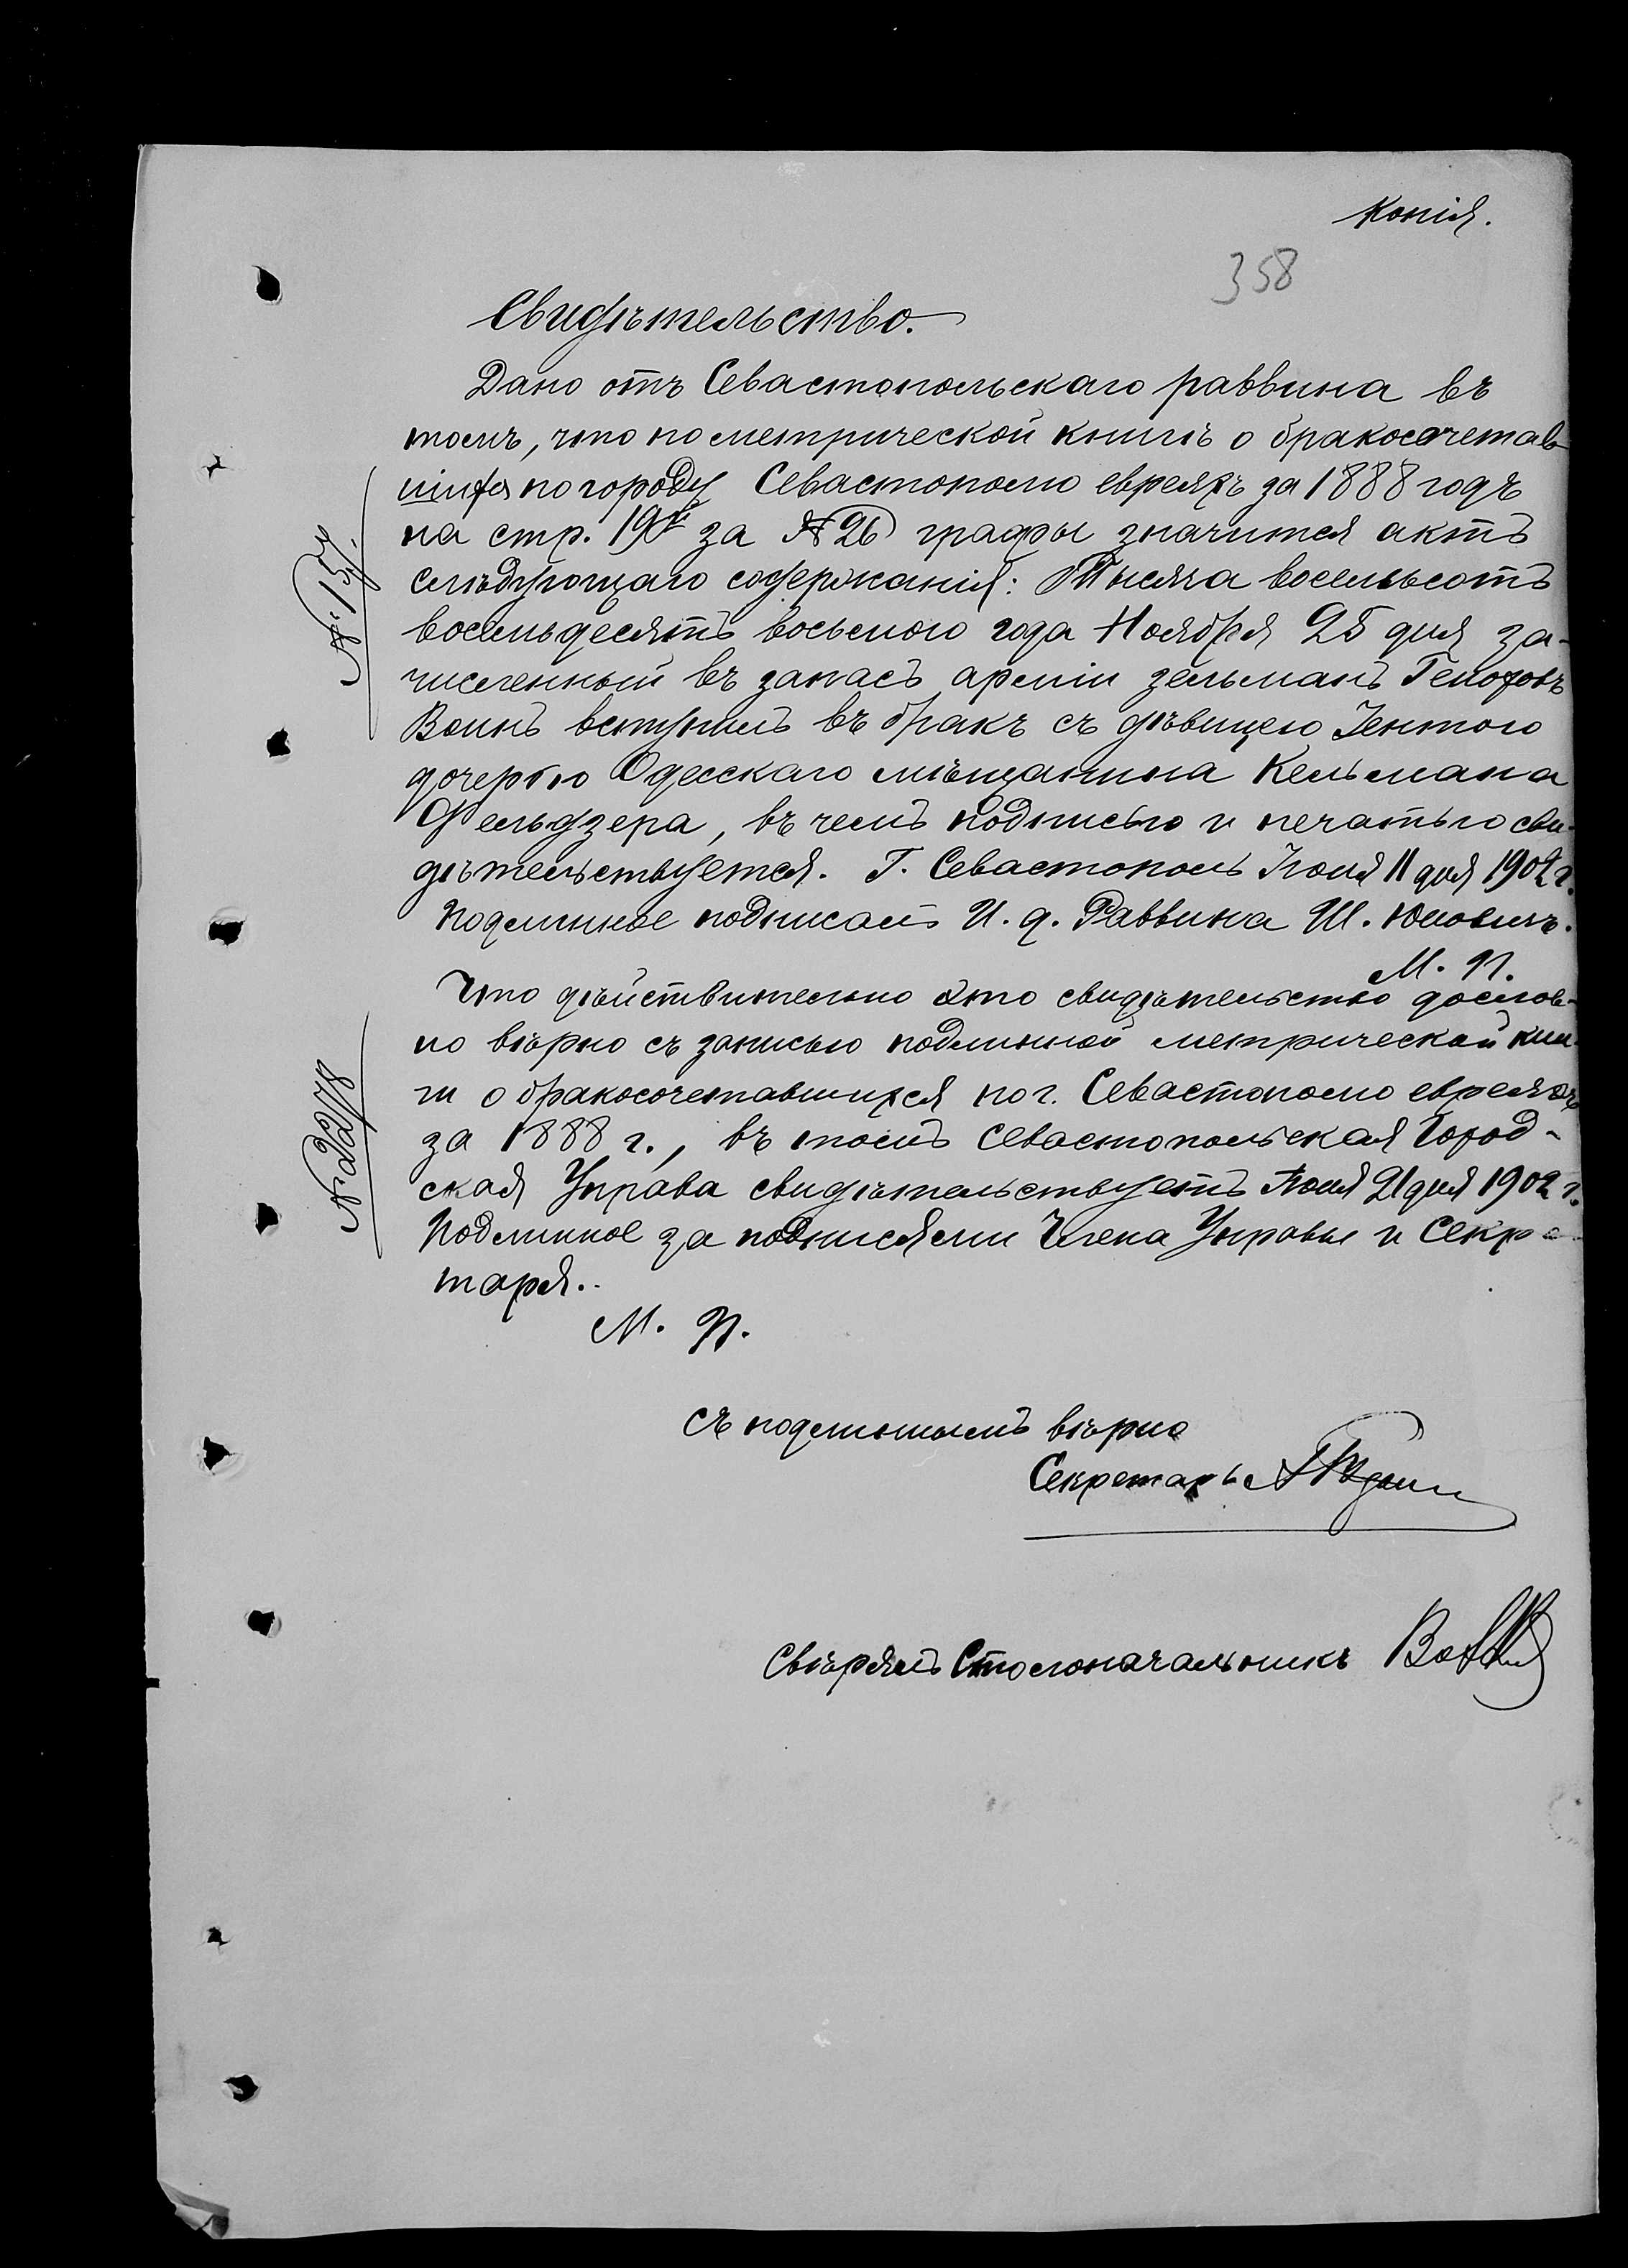 Копія.
358
Свидѣтельство.
Дано отъ Севастопольскаго раввина въ
томъ, что по метрической книгѣ о бракосочетав-
шихся по городу Севастополю евреяхъ за 1888 годъ
на стр. 19й за № 26 графы значится актъ
слѣдующаго содержанія: Тысяча восемьсотъ
восемьдесятъ восьмого года Ноября 25 дня за-
численный въ запасъ арміи Зельманъ
Воинъ вступилъ въ бракъ съ дѣвицею Іентою
дочерью Одесскаго мѣщанина Кельмана
Фельдзера, въ чемъ подписью и печатью сви-
дѣтельствуется. Г. Севастополь Іюля 11 дня 1902 г.
Подлинное подписалъ И. д. Раввина Ш.
М. П.
Что дѣйствительно это свидѣтельство дослов-
но вѣрно съ записью подлинной метрической кни-
ги о бракосочетавшихся по г. Севастополю евреяхъ
за 1888 г., въ томъ Севастопольская Город-
ская Управа свидѣтельствуетъ Іюля 21 дня 1902 г.
Подлинное за подписями Члена Управы и Секре-
таря.
М. П.
Съ подлиннымъ вѣрно
Секретарь
Свѣрялъ Столоначальникъ
№ 157.
№ 2278